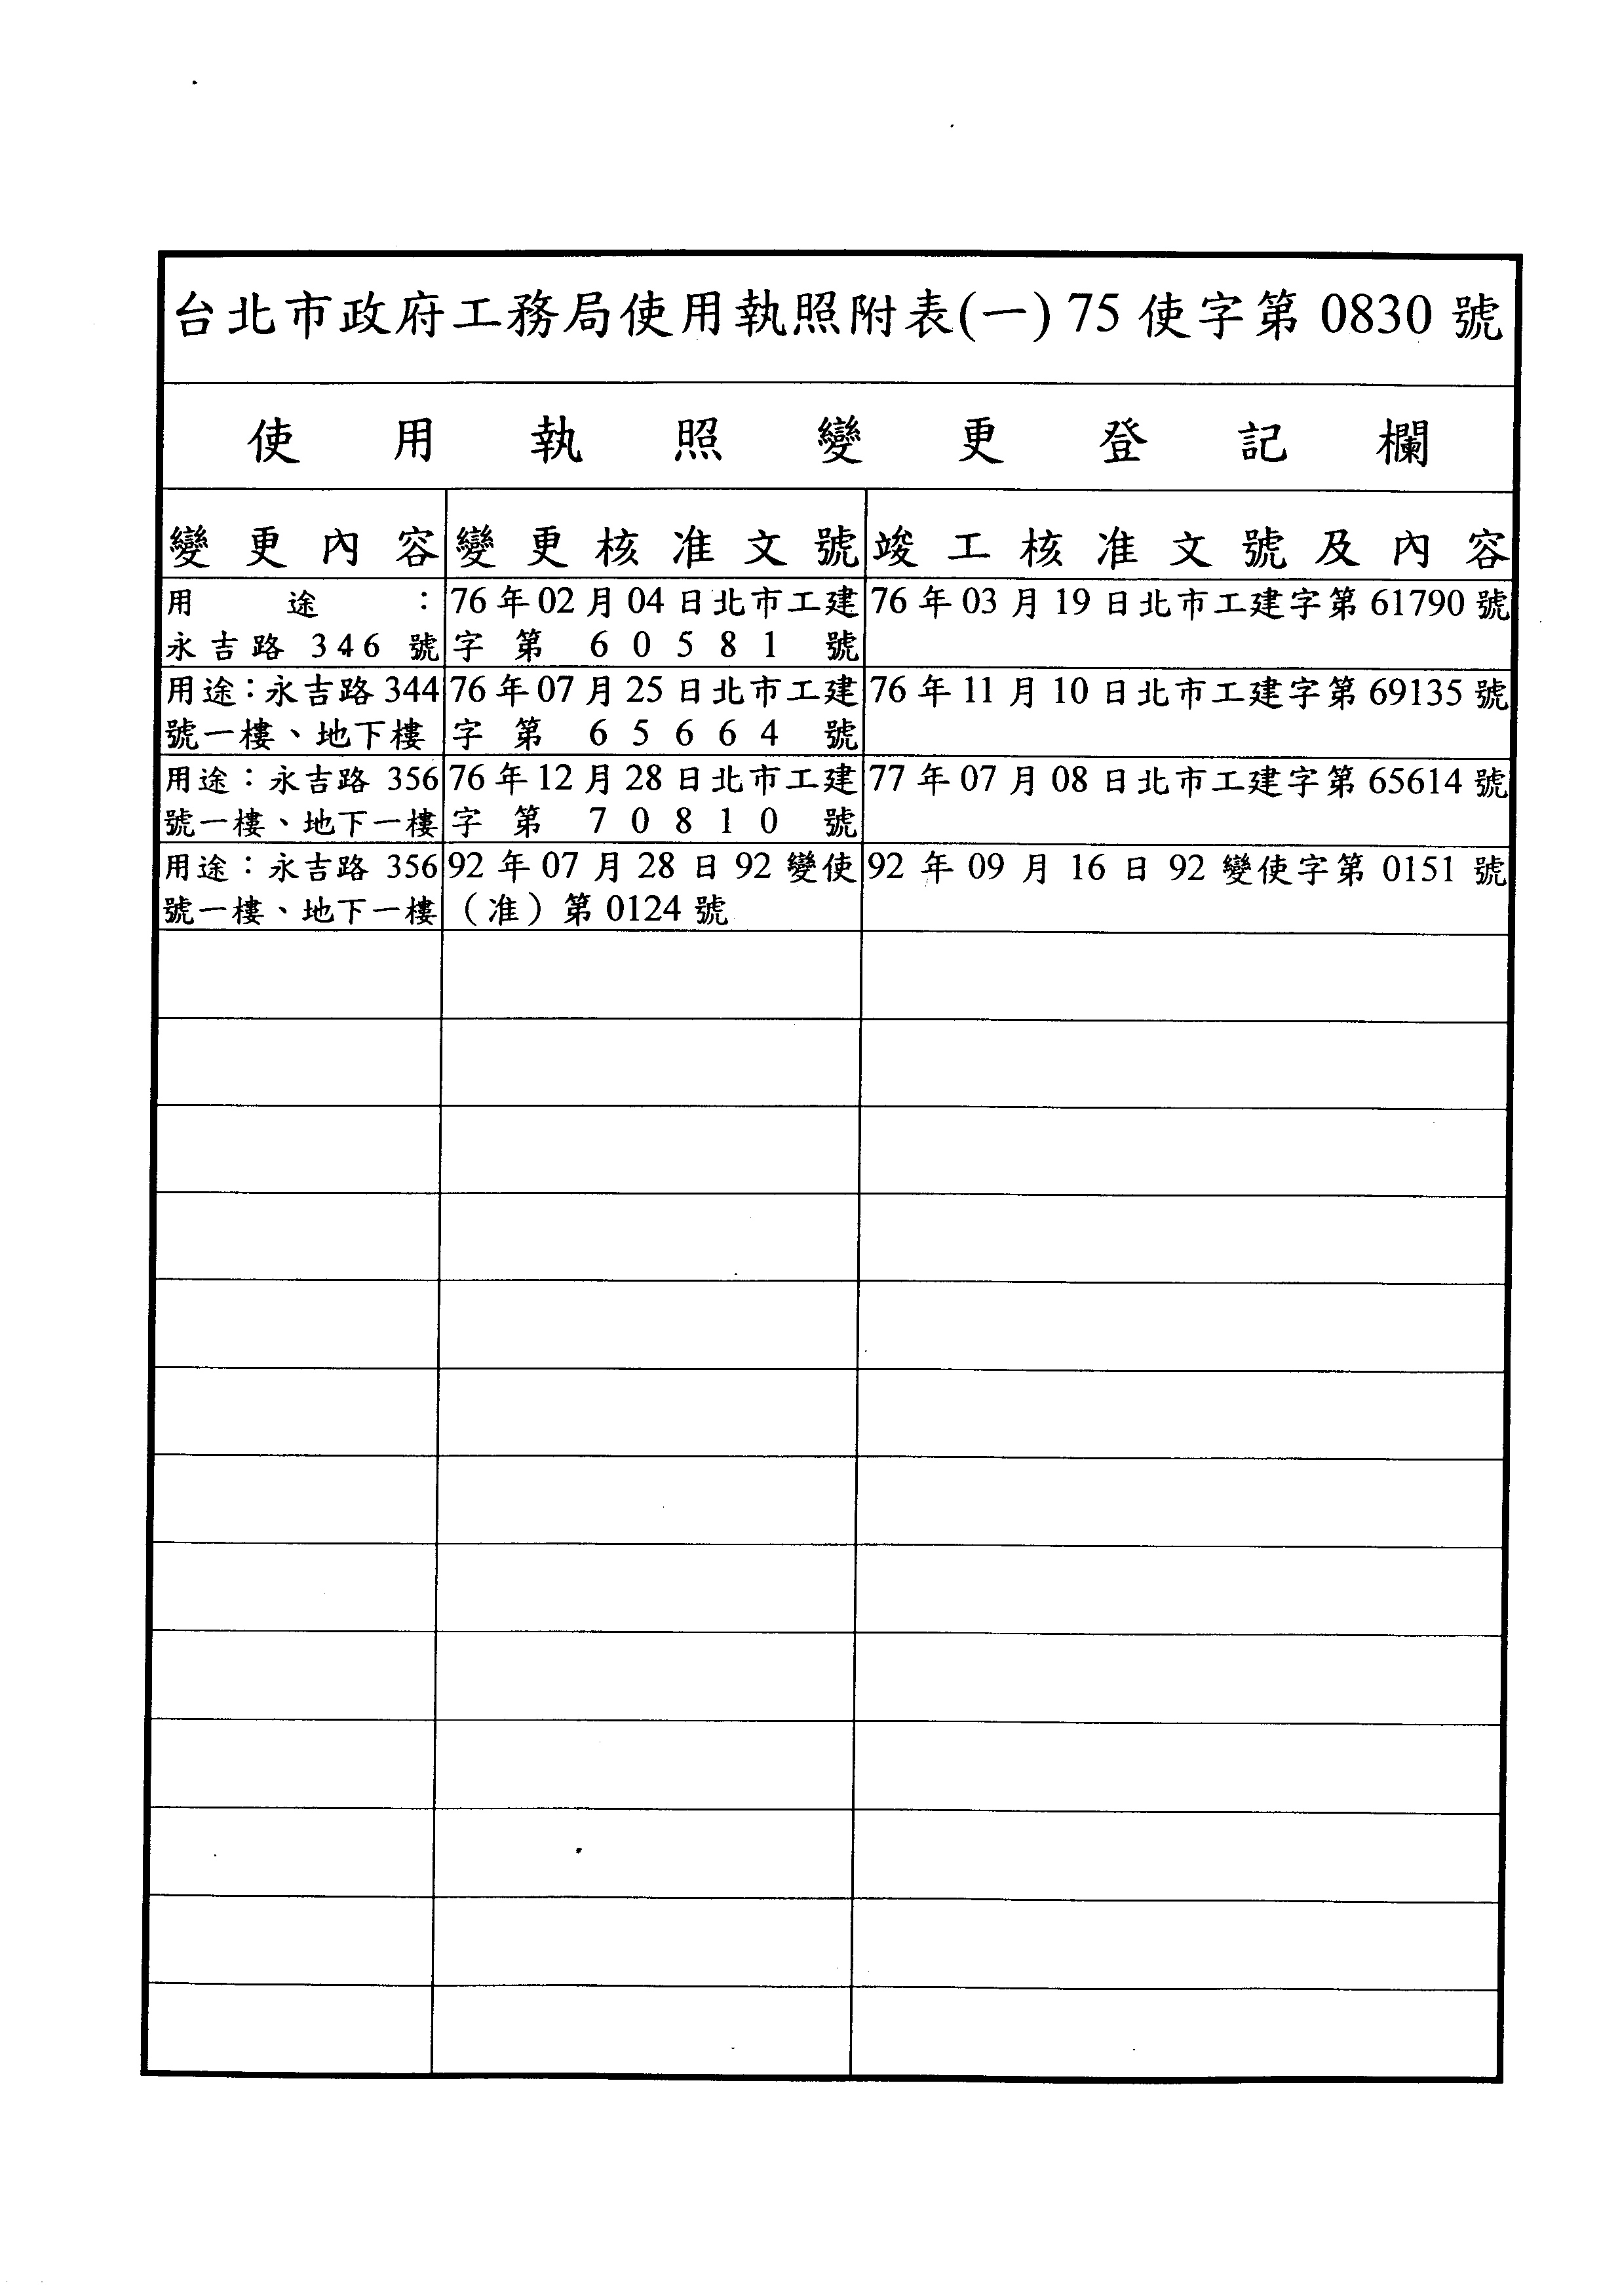 台北市政府工務局使用執照附表(一) 75 使字第 0830 號
使用執照變更登記欄
變更內容 變更核准文號 竣工核准文號及內容
用途：
永吉路 346 號
76 年 02 月 04 日北市工建
字第 60581 號
76 年 03 月 19 日北市工建字第 61790 號
用途：永吉路 344
號一樓、地下樓
76 年 07 月 25 日北市工建
字第 65664 號
76 年 11 月 10 日北市工建字第 69135 號
用途：永吉路 356
號一樓、地下一樓
76 年 12 月 28 日北市工建
字第 70810 號
77 年 07 月 08 日北市工建字第 65614 號
用途：永吉路 356
號一樓、地下一樓
92 年 07 月 28 日 92 變使
（准）第 0124 號
92 年 09 月 16 日 92 變使字第 0151 號